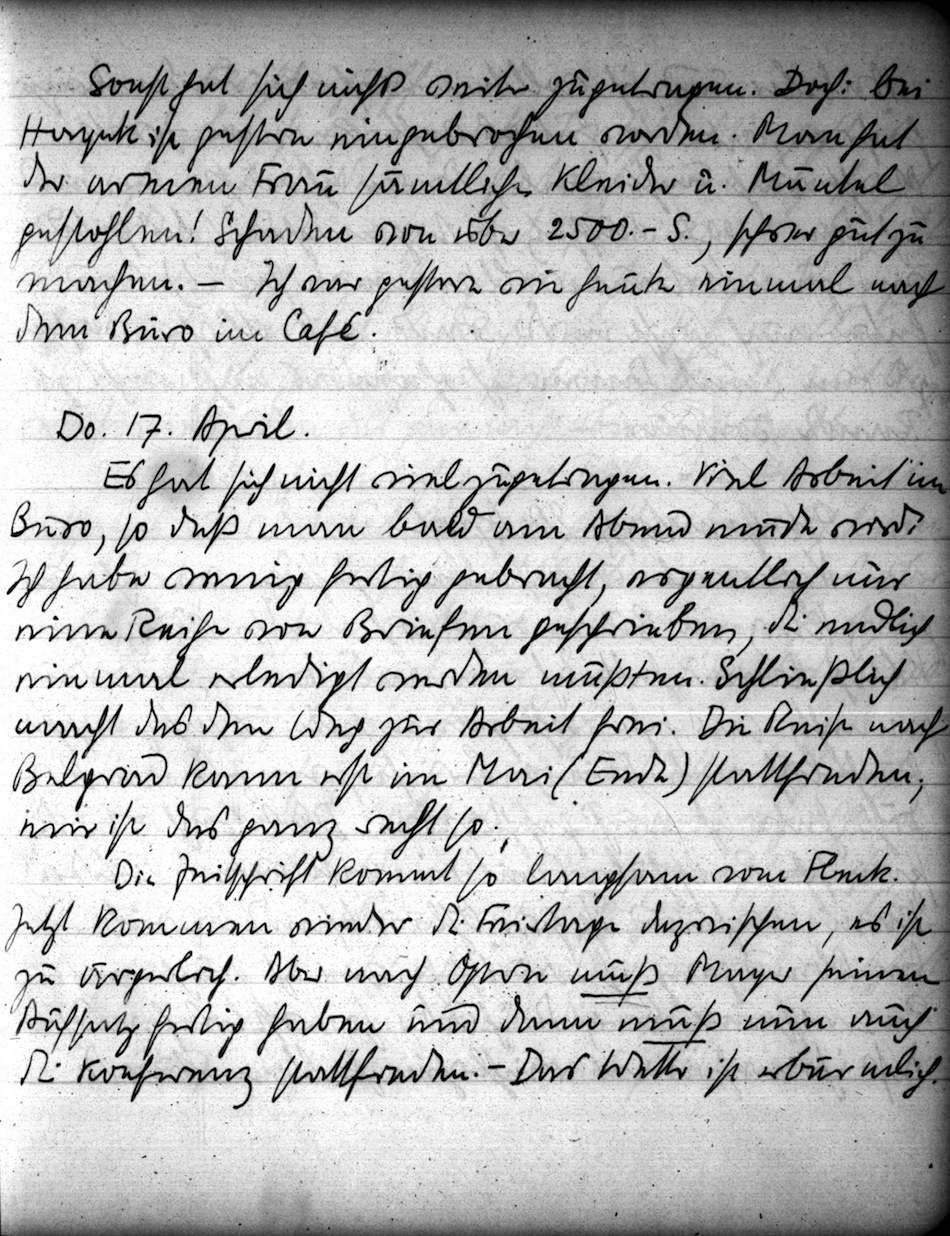 Sonst hat sich nichts weiter zugetragen. Doch: bei
Hayek ist gestern eingebrochen worden. Man hat
der armen Frau sämtliche Kleider u. Mäntel
gestohlen! Schaden von über 2500.- S., schwer gut zu
machen. – Ich war gestern wie heute einmal nach
dem Büro im Café.
Do. 17. April.
Es hat sich nicht viel zugetragen. Viel Arbeit im
Büro, so daß man bald am Abend müde wird.
Ich habe wenig fertig gebracht, eigentlich nur
eine Reihe von Briefen geschrieben, die endlich
einmal erledigt werden mußten. Schließlich
macht das den Weg zur Arbeit frei. Die Reise nach
Belgrad kann erst im Mai (Ende) stattfinden;
mir ist das ganz recht so.
Die Zeitschrift kommt so langsam vom Fleck.
Jetzt kommen wieder die Feiertage dazwischen, es ist
zu ärgerlich. Aber nach Ostern muß Mayer seinen
Aufsatz fertig haben und dann muß nun auch
die Konferenz stattfinden. – Das Wetter ist erbärmlich.